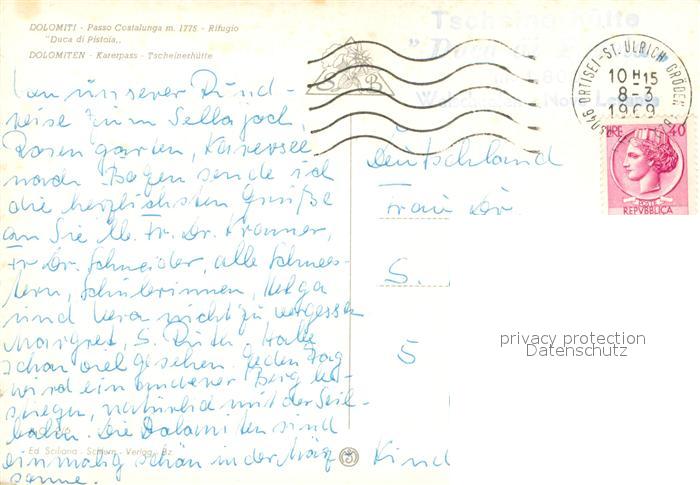 DOLOMITI - Passo Costalunga m. 1775 - Rifugio
"Duca di Pistoia,,
DOLOMITEN - Karerpass - Tscheinerhütte
Tscheinerhütte
ORTISEI - ST. ULRICH GRÖDEN
10 H 15
8-3
1969
S B
LIRE 40
POSTE
REPVBBLICA
Von unserer Rund-
reise zum Sellajoch,
Rosengarten, Karersee
nach Bozen sende ich
die herzlichsten Grüße
an Sie lb. Fr. Dr. Kranner,
Fr Dr. Schneider, alle Schwes-
tern, Schülerinnen, Helga
und Vera nicht zu vergessen
Margret, S. Ruth. Habe
schon viel gesehen. Jeden Tag
wird ein anderer Berg be-
stiegen, natürlich mit der Seil-
bahn. Die Dolomiten sind
einmalig schön in der März
sonne.
Deutschland
Frau Dr.
S.
5
Kind
Ed. Sciliana - Schlern - Verlag - Bz
privacy protection
Datenschutz